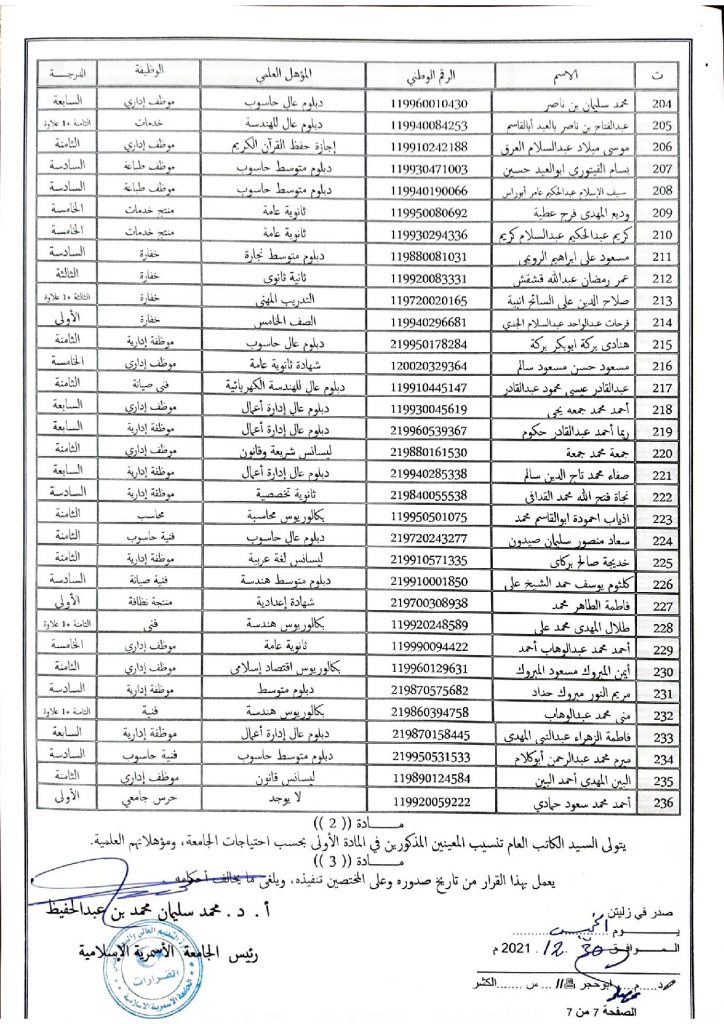 ت الاسم الرقم الوطني المؤهل العلمي الوظيفة الدرجة
204 محمد سليمان بن ناصر 119960010430 دبلوم عال حاسوب موظف إداري السابعة
205 عبدالفتاح بن ناصر بالعيد أبالقاسم 119940084253 دبلوم عال للهندسة خدمات الثامنة +1 علاوة
206 موسى ميلاد عبدالسلام العرق 119910242188 إجازة حفظ القرآن الكريم موظف إداري الثامنة
207 بسام الفيتوري ابوالعيد حسين 119930471003 دبلوم متوسط حاسوب موظف طباعة السادسة
208 سيف الإسلام عبدالحكيم عامر أبوراس 119940190066 دبلوم متوسط حاسوب موظف طباعة السادسة
209 وديع المهدى فرج عطية 119950080692 ثانوية عامة منتج خدمات الخامسة
210 كريم عبدالحكيم عبدالسلام كريم 119930294336 ثانوية عامة منتج خدمات الخامسة
211 مسعود على ابراهيم الرويمى 119880081031 دبلوم متوسط تجارة خفارة السادسة
212 عمر رمضان عبدالله قشقش 119920083331 ثانية ثانوى خفارة الثالثة
213 صلاح الدين على السائح انبية 119720020165 التدريب المهنى خفارة الثالثة +1 علاوة
214 فرحات عبدالواحد عبدالسلام الجدي 119940296681 الصف الخامس خفارة الأولى
215 هنادى بركة ابوبكر بركة 219950178284 دبلوم عال حاسوب موظفة إدارية الثامنة
216 مسعود حسن مسعود سالم 120020329364 شهادة ثانوية عامة موظف إداري الخامسة
217 عبدالقادر عيسى محمود عبدالقادر 119910445147 دبلوم عال للهندسة الكهربائية فنى صيانة الثامنة
218 أحمد محمد جمعه يحى 119930045619 دبلوم عال إدارة أعمال موظف إداري السابعة
219 ريما أحمد عبدالقادر حكوم 219960539367 دبلوم عال إدارة أعمال موظفة إدارية السابعة
220 جمعة محمد جمعة 219880161530 ليسانس شريعة وقانون موظف إداري الثامنة
221 صفاء محمد تاج الدين سالم 219940285338 دبلوم عال إدارة أعمال موظفة إدارية السابعة
222 نجاة فتح الله محمد القذافى 219840055538 ثانوية تخصصية موظفة إدارية السادسة
223 اذياب احمودة ابوالقاسم محمد 119950501075 بكالوريوس محاسبة محاسب الثامنة
224 سعاد منصور سليمان صيدون 219720243277 دبلوم عال حاسوب فنية حاسوب الثامنة
225 خديجة صالح بركاى 219910571335 ليسانس لغة عربية موظفة إدارية الثامنة
226 كلثوم يوسف حمد الشيخ على 219910001850 دبلوم متوسط هندسة فنية صيانة السادسة
227 فاطمة الطاهر محمد 219700308938 شهادة إعدادية منتجة نظافة الأولى
228 طلال المهدى محمد على 119920248589 بكالوريوس هندسة فنى الثامنة +1 علاوة
229 أحمد محمد عبدالوهاب أحمد 119990094422 ثانوية عامة موظف إداري الخامسة
230 أيمن المبروك مسعود المبروك 119960129631 بكالوريوس اقتصاد إسلامى موظف إداري الثامنة
231 مريم النور مبروك حداد 219870575682 دبلوم متوسط موظفة إدارية السادسة
232 منى محمد عبدالوهاب 219860394758 بكالوريوس هندسة فنية الثامنة +1 علاوة
233 فاطمة الزهراء عبدالنبى المهدى 219870158445 دبلوم عال إدارة أعمال موظفة إدارية السابعة
234 ميرم محمد عبدالرحمن أبوكلام 219950531533 دبلوم متوسط حاسوب فنية حاسوب السادسة
235 البين المهدى أحمد البين 119890124584 ليسانس قانون موظف إداري الثامنة
236 أحمد محمد سعود حمادي 119920059222 لا يوجد حرس جامعي الأولى
مــــادة (( 2 ))
يتولى السيد الكاتب العام تنسيب المعينين المذكورين في المادة الأولى بحسب احتياجات الجامعة، ومؤهلاتهم العلمية.
مــــادة (( 3 ))
يعمل بهذا القرار من تاريخ صدوره وعلى المختصين تنفيذه، ويلغى ما يخالف أحكامه.
أ . د. محمد سليمان محمد بن عبدالحفيظ
رئيس الجامعة الأسمرية الإسلامية
القرارات
الجامعة الأسمرية الإسلامية
صدر في زليتن
يـــوم الخميس
المـوافق 30. 12. 2021 م
الصفحة 7 من 7